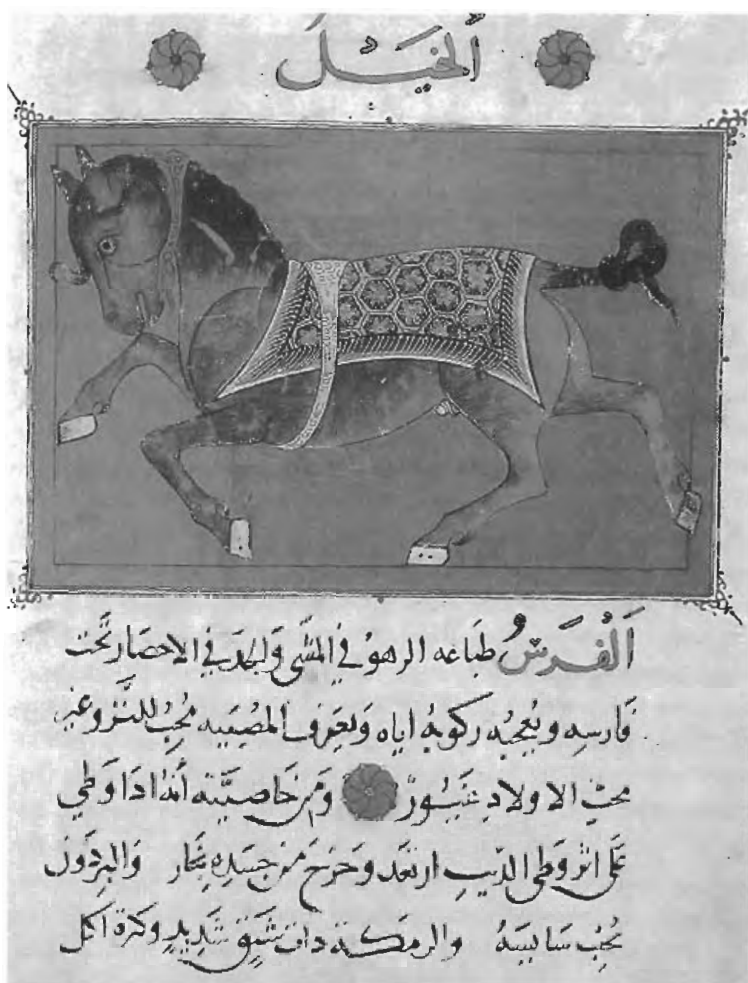 الخيل
الفرس طباعه الزهو في المشى والجد في الاحصار تحت
فارسه ويعجبه ركوبه اياه ويعرف المصيبه محب للنزو غير
محب الاولاد غيور ومن خاصيته أنه اذا وطي
على اثر وطى الذيب ارتعد وخرج من جسده بخار والبرذون
يحب سايسه والرمكة ذات شبق شديد وكثرة اكل